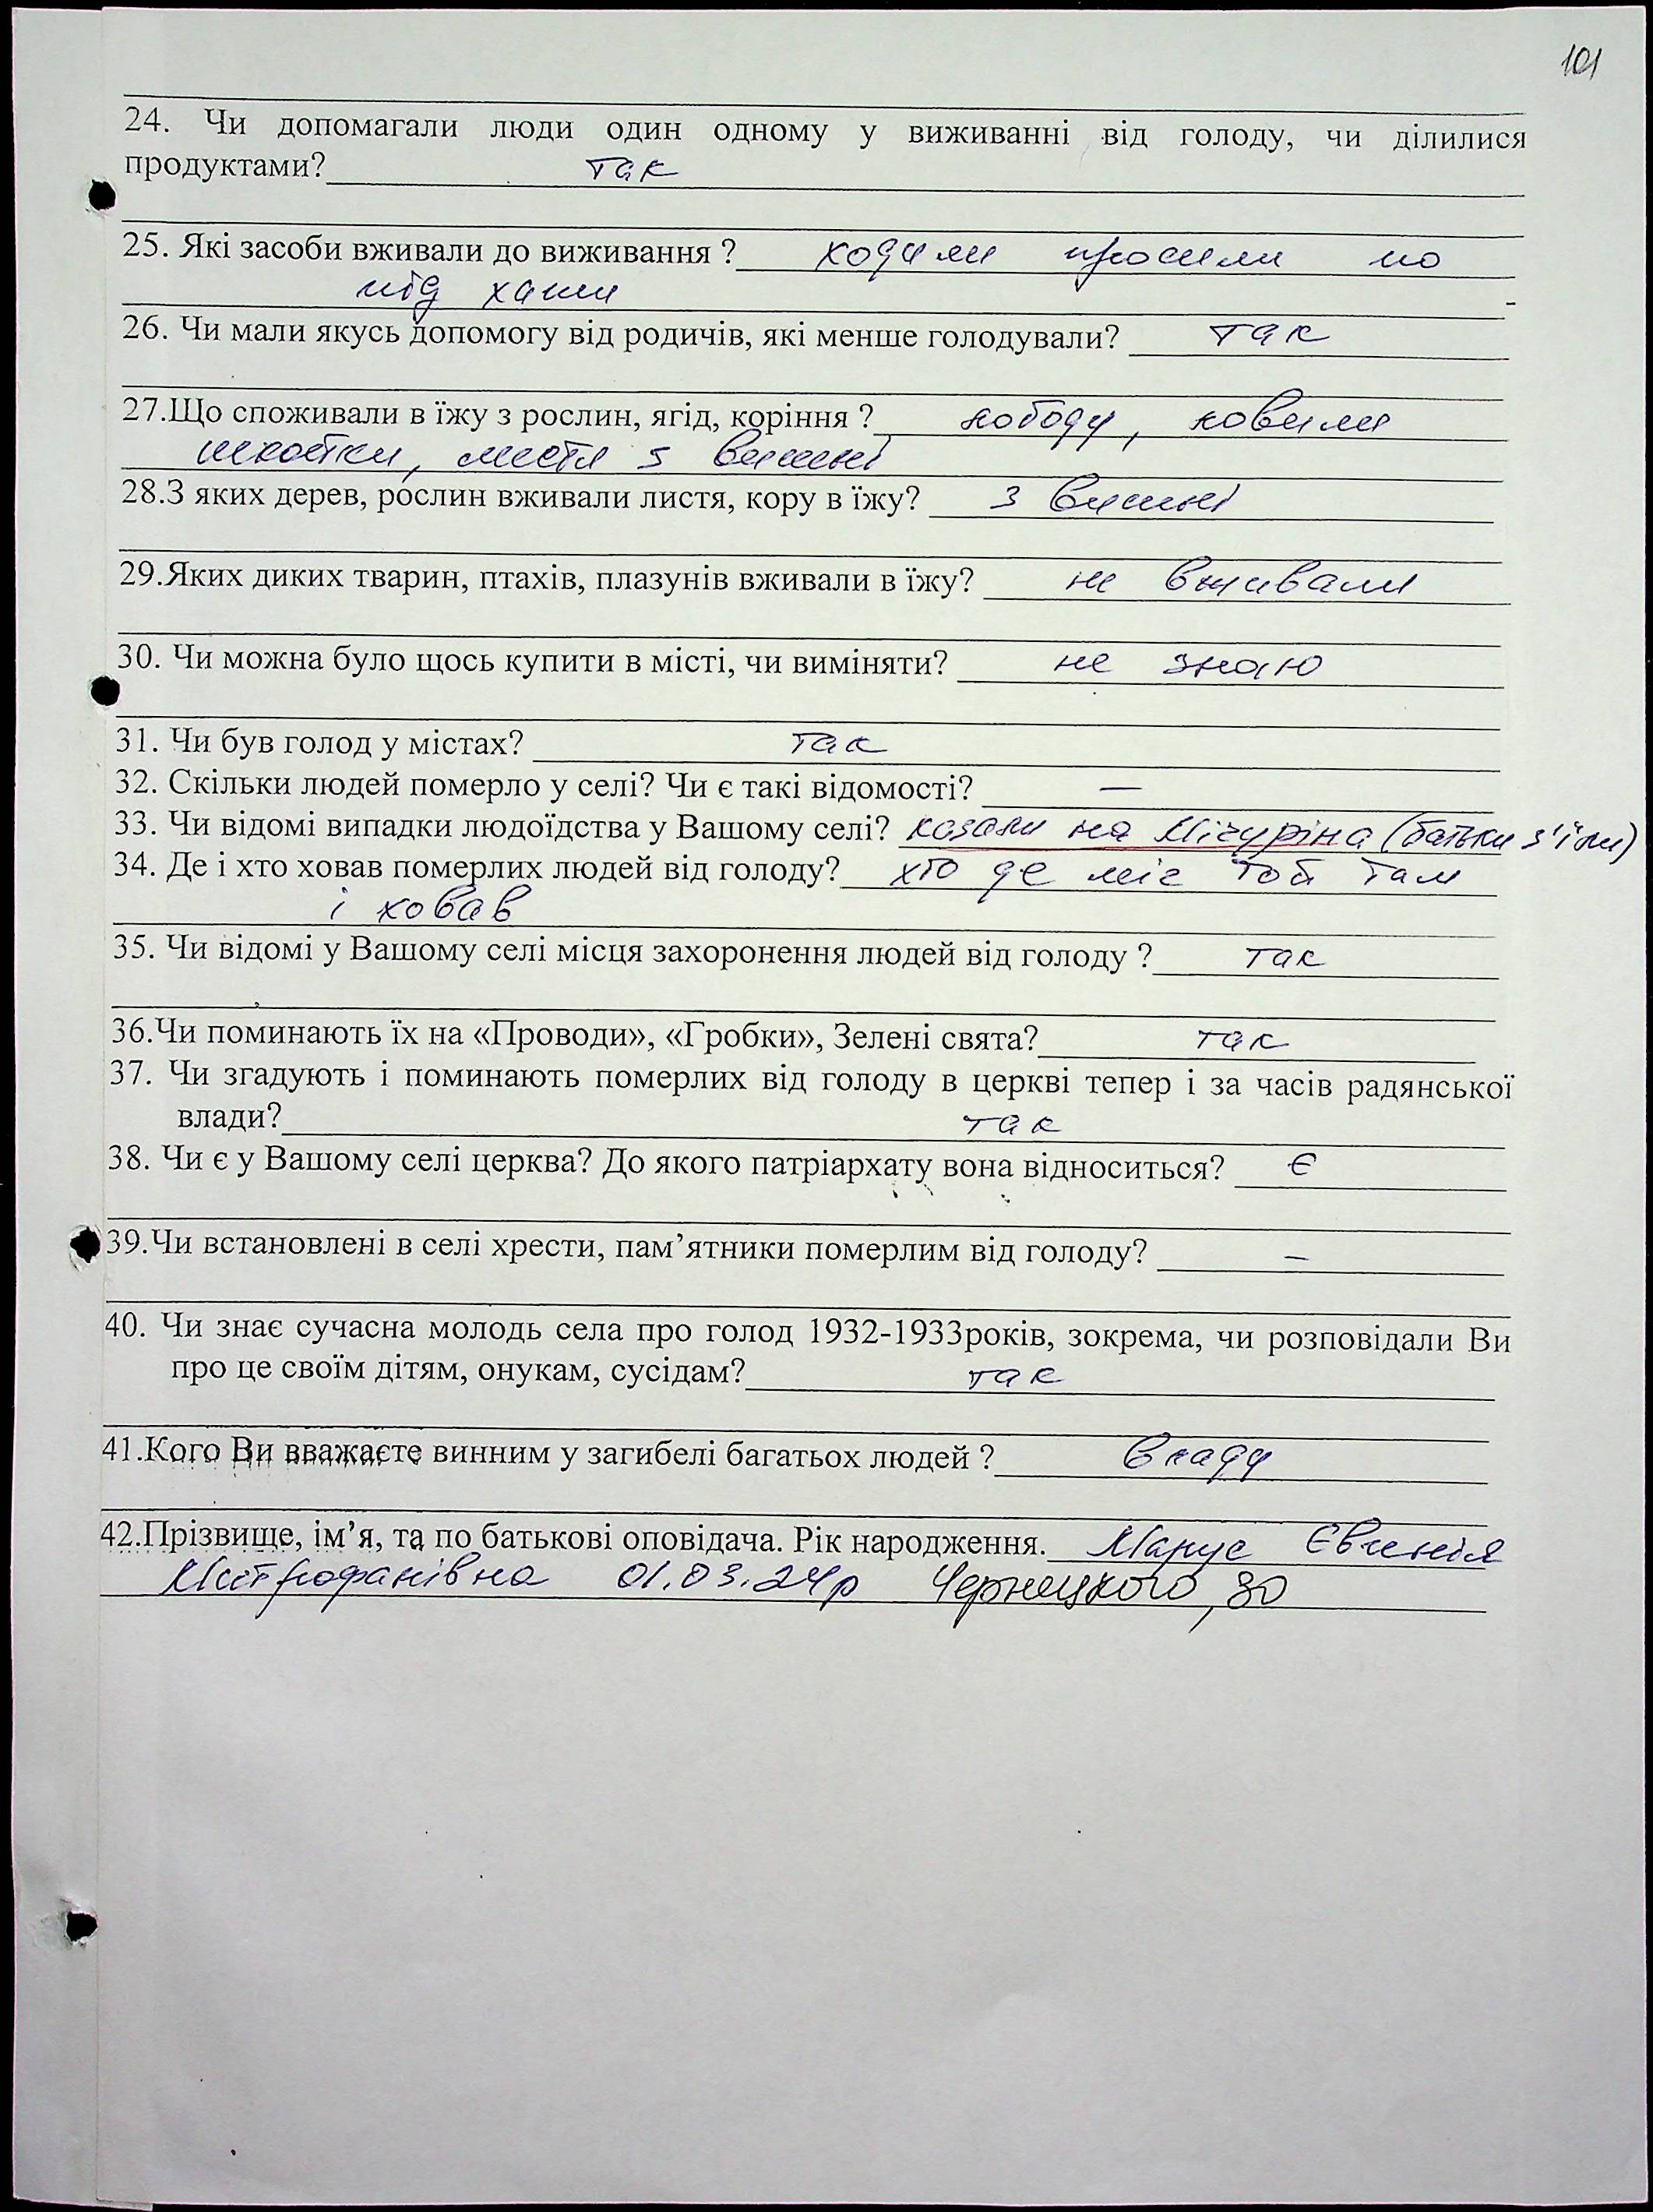 101
24. Чи допомагали люди один одному у виживанні від голоду, чи ділилися
продуктами? так
25. Які засоби вживали до виживання ? ходили просили по
під хати
26. Чи мали якусь допомогу від родичів, які менше голодували? так
27.Що споживали в їжу з рослин, ягід, коріння ? лободу, ловили
шкойки, листя з вишні
28.З яких дерев, рослин вживали листя, кору в їжу? з вишні
29.Яких диких тварин, птахів, плазунів вживали в їжу? не вживали
30. Чи можна було щось купити в місті, чи виміняти? не знаю
31. Чи був голод у містах? так
32. Скільки людей померло у селі? Чи є такі відомості? —
33. Чи відомі випадки людоїдства у Вашому селі? казали на Мічуріна (батьки з'їли)
34. Де і хто ховав померлих людей від голоду? хто де міг той там
і ховав
35. Чи відомі у Вашому селі місця захоронення людей від голоду ? так
36.Чи поминають їх на «Проводи», «Гробки», Зелені свята? так
37. Чи згадують і поминають померлих від голоду в церкві тепер і за часів радянської
влади? так
38. Чи є у Вашому селі церква? До якого патріархату вона відноситься? Є
39.Чи встановлені в селі хрести, пам’ятники померлим від голоду? –
40. Чи знає сучасна молодь села про голод 1932-1933років, зокрема, чи розповідали Ви
про це своїм дітям, онукам, сусідам? так
41.Кого Ви вважаєте винним у загибелі багатьох людей ? владу
42.Прізвище, ім’я, та по батькові оповідача. Рік народження. Марус Євгенія
Митрофанівна 01.03.24р Чернецького, 80